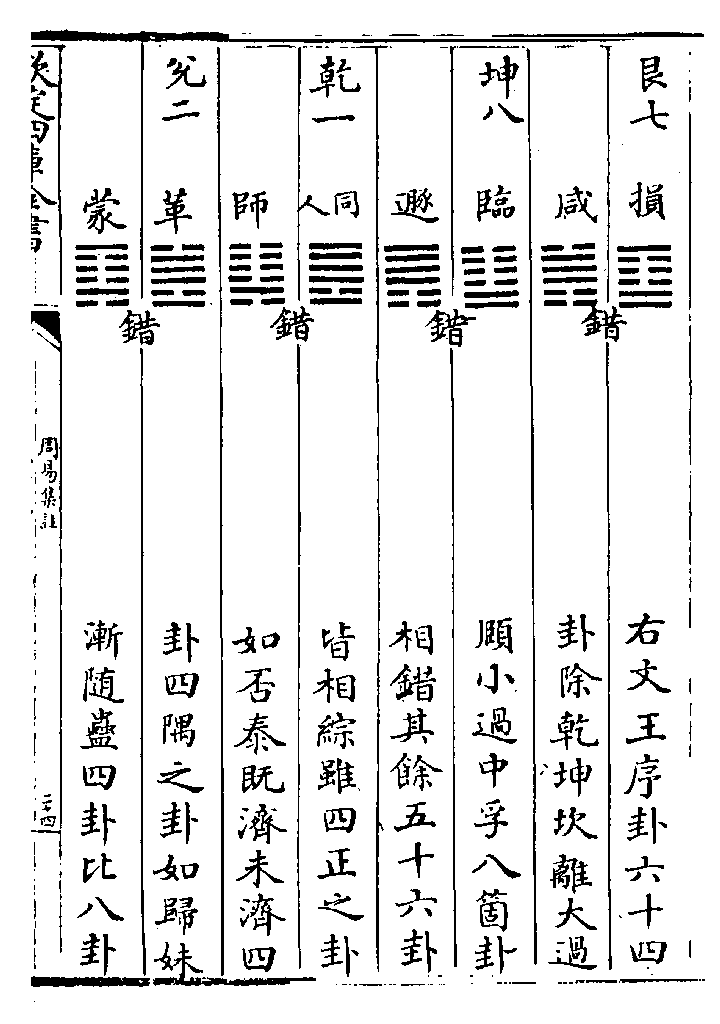 艮七 損
咸
錯
坤八 臨
遯
錯
乾一 同人
師
錯
兌二 革
蒙
錯
右文王序卦六十四
卦除乾坤坎離大過
頤小過中孚八箇卦
相錯其餘五十六卦
皆相綜雖四正之卦
如否泰既濟未濟四
卦四隅之卦如歸妹
漸随蠱四卦比八卦
欽定四庫全書
周易集註
二十四